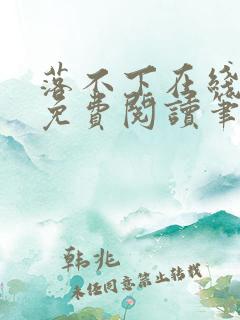 落不下在綫
免費閱讀筆
韩兆
未经同意禁止转载